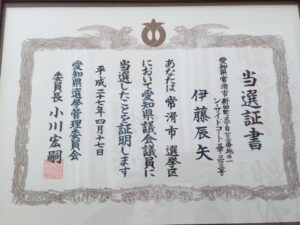 当選証書
愛知県常滑市新田町三丁目
シーサイドコート
伊藤辰矢
あなたは常滑市選挙区
において愛知県議会議員に
当選したことを証明します
平成二十七年四月十七日
愛知県選挙管理委員会
委員長 小川宏嗣